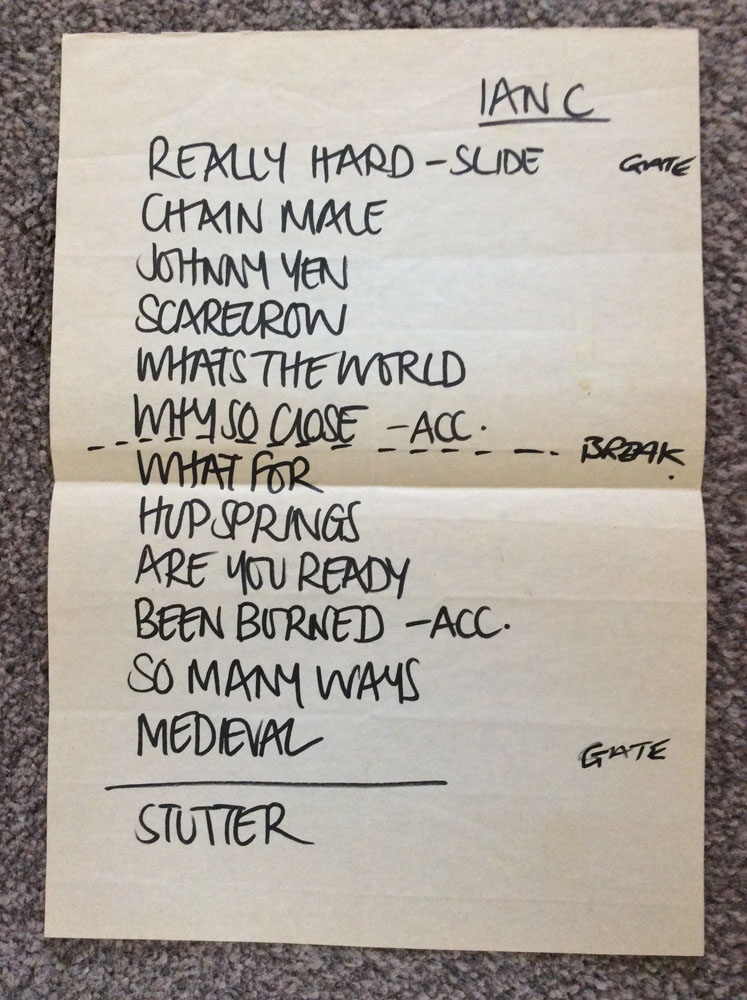 IAN C
REALLY HARD - SLIDE GATE
CHAIN MALE
JOHNNY YEN
SCARECROW
WHATS THE WORLD
WHY SO CLOSE - ACC.
BREAK.
WHAT FOR
HUP SPRINGS
ARE YOU READY
BEEN BURNED - ACC.
SO MANY WAYS
MEDIEVAL
GATE
STUTTER